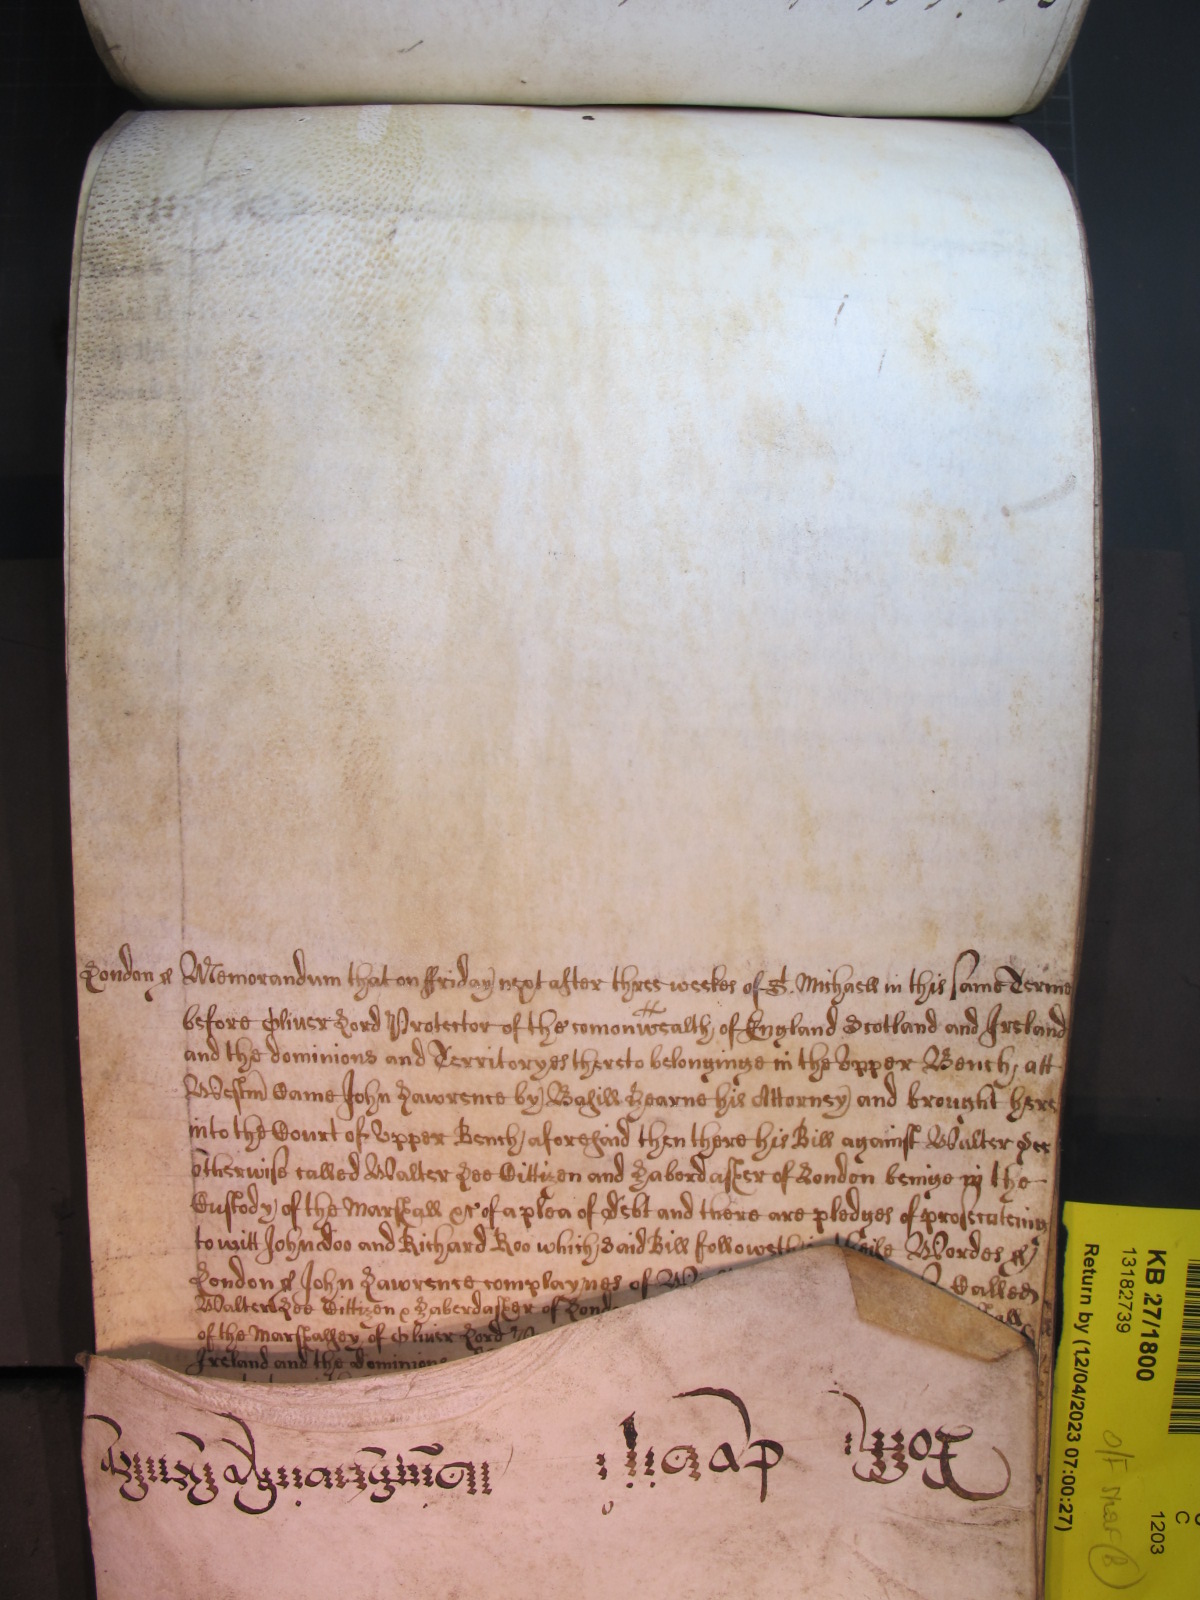 London ss Memorandum that on ffriday next after three weekes of St. Michaell in this same Terme
before Oliver Lord Protector of the comonwealth of England Scotland and Ireland
and the dominions and Territoryes thereto belonginge in the Upper Bench att
Westm Came John Lawrence by Basill Hearne his Attorney and brought here
into the Court of Upper Bench aforesaid then there his Bill against Walter Lee
otherwise called Walter Lee Cittizen and Haberdasher of London beinge in the
Custody of the Marshall &c of a plea of debt and there are pledges of prosecuteing
to witt John doo and Richard Roo which said Bill followeth in theise Wordes ss
London ss John Lawrence complaynes of Called
Walter Lee Cittizen & Haberdasher of
of the Marshalsey of Oliver Lord
Ireland and the dominions
KB 27/1800
13182739
Return by (12/04/2023 07:00:27)
C
1203